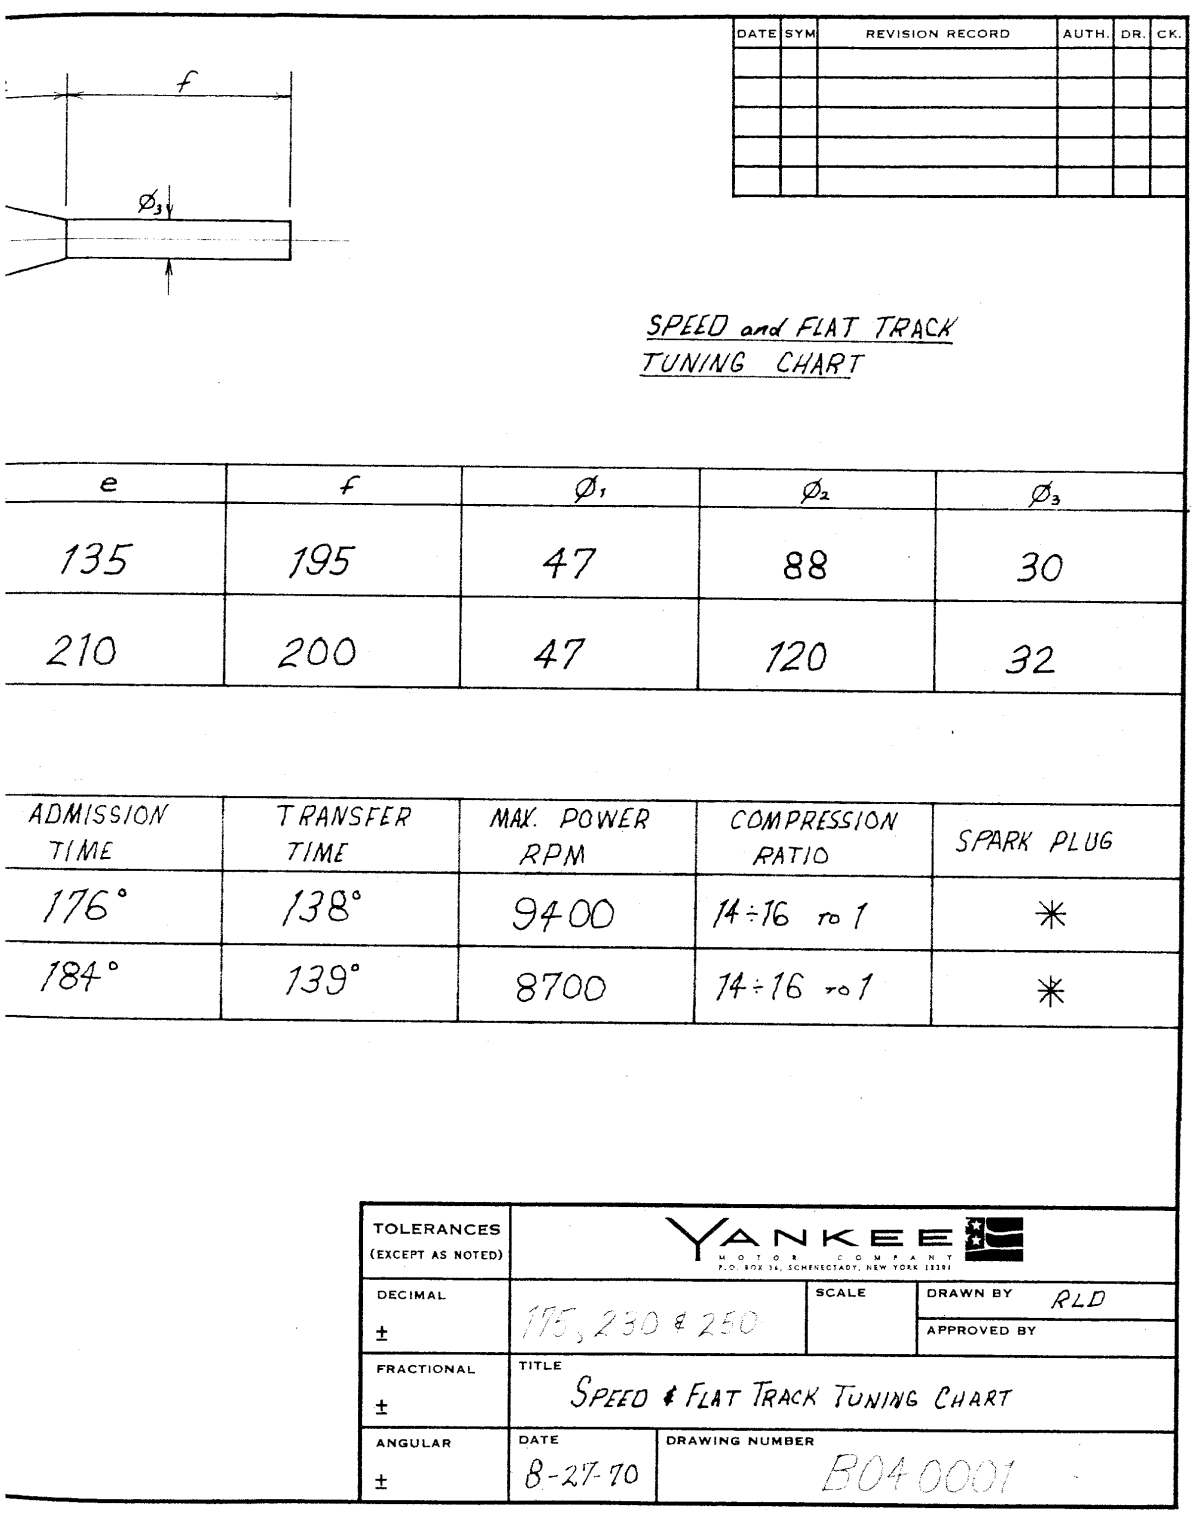 DATE SYM REVISION RECORD AUTH. DR. CK.
f
Ø₃
SPEED and FLAT TRACK
TUNING CHART
e f Ø₁ Ø₂ Ø₃
135 195 47 88 30
210 200 47 120 32
ADMISSION TRANSFER MAX. POWER COMPRESSION SPARK PLUG
TIME TIME RPM RATIO
176° 138° 9400 14÷16 TO 1 *
184° 139° 8700 14÷16 TO 1 *
TOLERANCES
(EXCEPT AS NOTED)
YANKEE
MOTOR COMPANY
P.O. BOX 36, SCHENECTADY, NEW YORK
DECIMAL
±
175, 230 & 250
SCALE
DRAWN BY RLD
APPROVED BY
FRACTIONAL
±
TITLE
SPEED & FLAT TRACK TUNING CHART
ANGULAR
±
DATE
8-27-70
DRAWING NUMBER
B04 0001